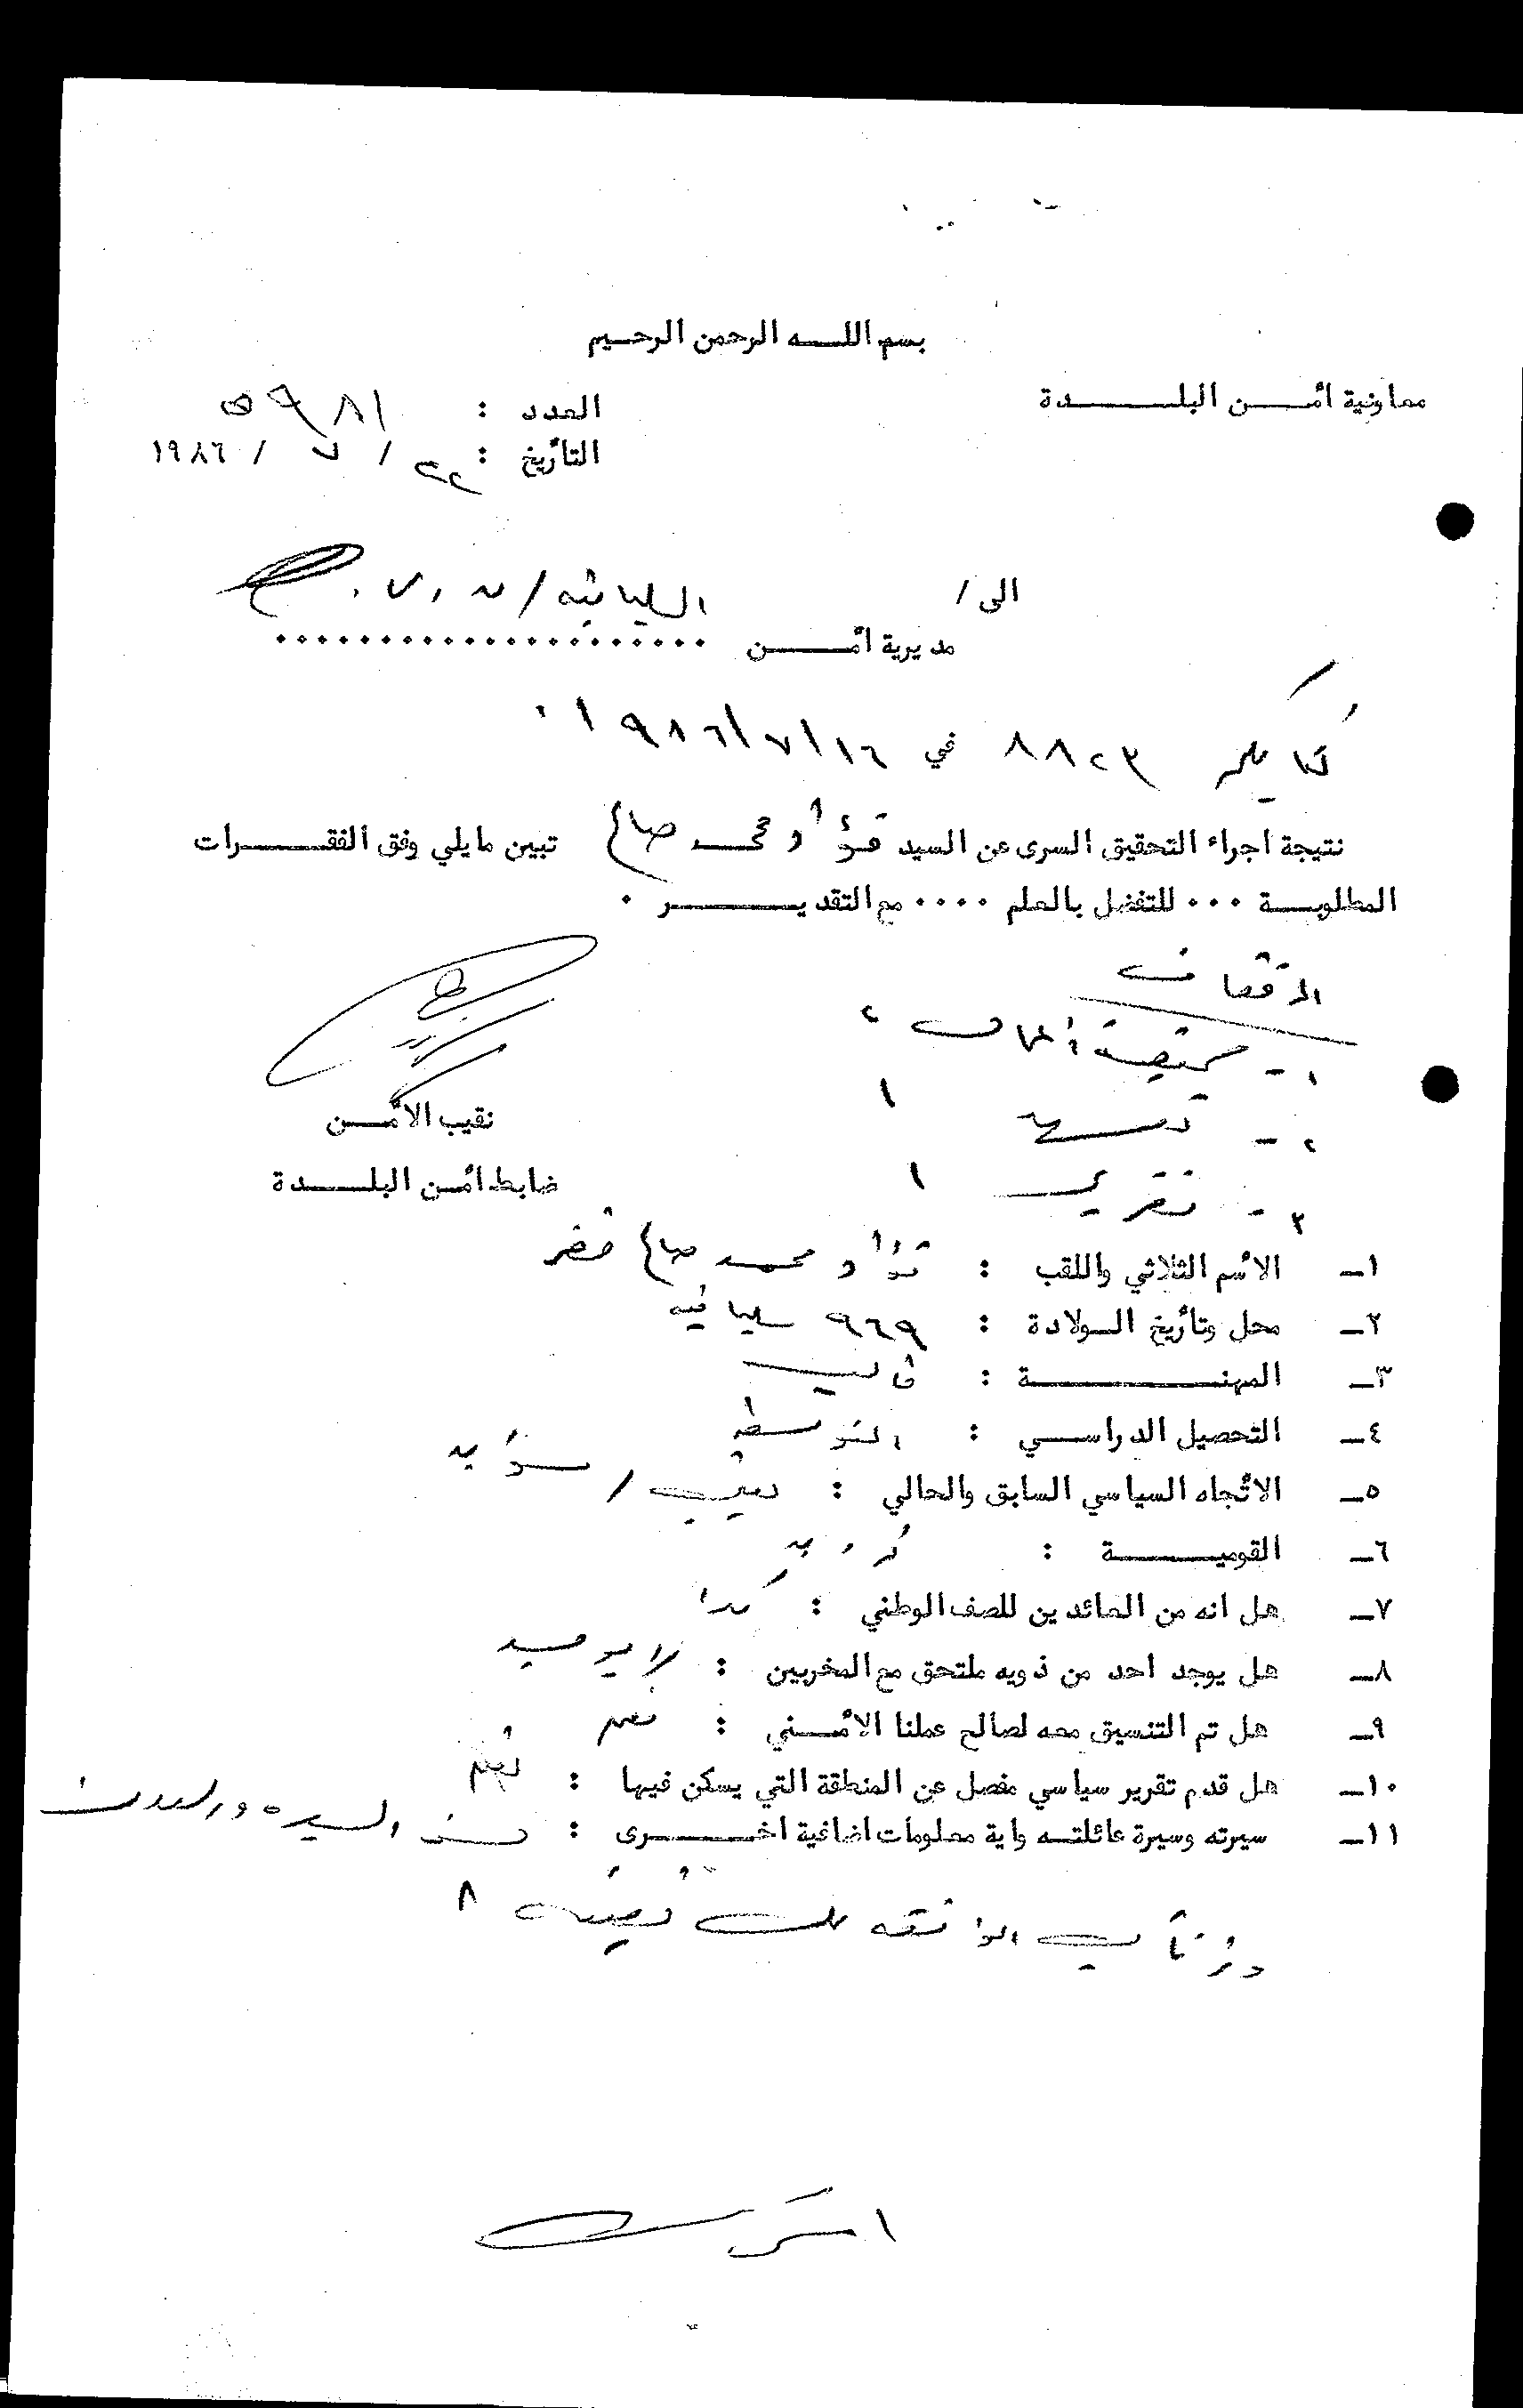 بسم اللـــه الرحمن الرحـيم
معاونية أمـــن البلـــــدة
العدد : ٥٩٨١
التأريخ : ٢٢ / ٧ / ١٩٨٦
الى /
مديرية أمـــــن السليمانيه / .....................
كتابكم ٨٨٢٣ في ١٩٨٦/٧/١٦ ٠
نتيجة اجراء التحقيق السرى عن السيد فؤاد محمد صالح تبين مايلي وفق الفقـــرات
المطلوبـــة ٠٠٠ للتفضل بالعلم ٠٠٠٠ مع التقديـــــر ٠
المرفقات
١ -
٢ - تعهد ١
٣ - تقرير ١
نقيب الأمـــن
ضابط أمـن البلـــدة
١ــ الأسم الثلاثي واللقب : فؤاد محمد صالح خضر
٢ــ محل وتأريخ الـولادة : ٩٦٩ سليمانيه
٣ــ المهنـــــــة : طالب
٤ــ التحصيل الدراســي : المتوسطه
٥ــ الأتجاه السياسي السابق والحالي : / مؤيد
٦ــ القوميـــــة :
٧ــ هل انه من العائدين للصف الوطني : كلا
٨ــ هل يوجد احد من ذويه ملتحق مع المخربين : لا يوجد
٩ــ هل تم التنسيق معه لصالح عملنا الأمـــني : نعم
١٠ــ هل قدم تقرير سياسي مفصل عن المنطقة التي يسكن فيها : نعم
١١ــ سيرته وسيرة عائلتـــه واية معلومات اضافية اخـــــرى : حسن السيره والسلوك